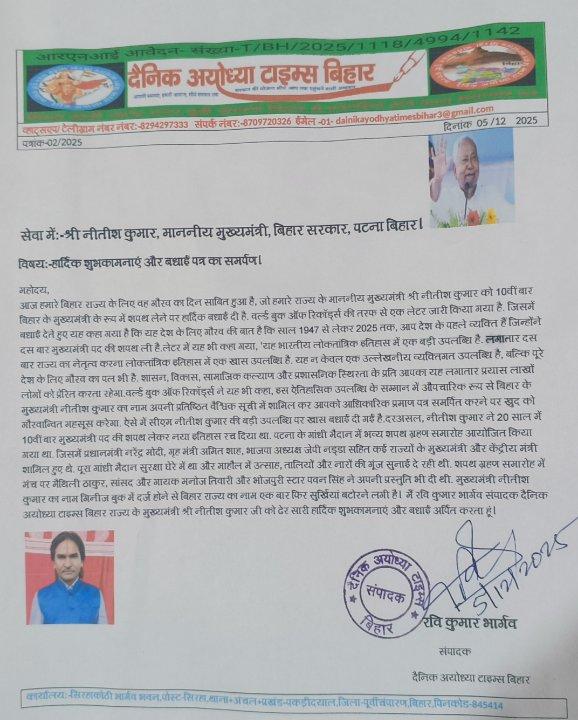 आरएनआई आवेदन- संख्या-T/BH/2025/1118/4994/1142
दैनिक अयोध्या टाइम्स बिहार
व्हाट्सएप/ टेलीग्राम नंबर नंबर:-8294297333 संपर्क नंबर:-8709720326 ईमेल -01- dainikayodhyatimesbihar3@gmail.com
पत्रांक-02/2025
दिनांक 05 /12 2025
सेवा में:-श्री नीतीश कुमार, माननीय मुख्यमंत्री, बिहार सरकार, पटना बिहार।
विषय:-हार्दिक शुभकामनाएं और बधाई पत्र का समर्पण।
महोदय,
आज हमारे बिहार राज्य के लिए वह गौरव का दिन साबित हुआ है, जो हमारे राज्य के माननीय मुख्यमंत्री श्री नीतीश कुमार को 10वीं बार
बिहार के मुख्यमंत्री के रूप में शपथ लेने पर हार्दिक बधाई दी है. वर्ल्ड बुक ऑफ रिकॉर्ड्स की तरफ से एक लेटर जारी किया गया है. जिसमें
बधाई देते हुए यह कहा गया है कि यह देश के लिए गौरव की बात है कि साल 1947 से लेकर 2025 तक, आप देश के पहले व्यक्ति हैं जिन्होंने
दस बार मुख्यमंत्री पद की शपथ ली है.लेटर में यह भी कहा गया, 'यह भारतीय लोकतांत्रिक इतिहास में एक बड़ी उपलब्धि है. लगातार दस
बार राज्य का नेतृत्व करना लोकतांत्रिक इतिहास में एक खास उपलब्धि है. यह न केवल एक उल्लेखनीय व्यक्तिगत उपलब्धि है, बल्कि पूरे
देश के लिए गौरव का पल भी है. शासन, विकास, सामाजिक कल्याण और प्रशासनिक स्थिरता के प्रति आपका यह लगातार प्रयास लाखों
लोगों को प्रेरित करता रहेगा.वर्ल्ड बुक ऑफ रिकॉर्ड्स ने यह भी कहा, इस ऐतिहासिक उपलब्धि के सम्मान में औपचारिक रूप से बिहार के
मुख्यमंत्री नीतीश कुमार का नाम अपनी प्रतिष्ठित वैश्विक सूची में शामिल कर आपको आधिकारिक प्रमाण पत्र समर्पित करने पर खुद को
गौरवान्वित महसूस करेगा. ऐसे में सीएम नीतीश कुमार की बड़ी उपलब्धि पर खास बधाई दी गई है.दरअसल, नीतीश कुमार ने 20 साल में
10वीं बार मुख्यमंत्री पद की शपथ लेकर नया इतिहास रच दिया था. पटना के गांधी मैदान में भव्य शपथ ग्रहण समारोह आयोजित किया
गया था. जिसमें प्रधानमंत्री नरेंद्र मोदी, गृह मंत्री अमित शाह, भाजपा अध्यक्ष जेपी नड्डा सहित कई राज्यों के मुख्यमंत्री और केंद्रीय मंत्री
शामिल हुए थे. पूरा गांधी मैदान सुरक्षा घेरे में था और माहौल में उत्साह, तालियों और नारों की गूंज सुनाई दे रही थी. शपथ ग्रहण समारोह में
मंच पर मैथिली ठाकुर, सांसद और गायक मनोज तिवारी और भोजपुरी स्टार पवन सिंह ने अपनी प्रस्तुति भी दी थी. मुख्यमंत्री नीतीश
कुमार का नाम गिनीज बुक में दर्ज होने से बिहार राज्य का नाम एक बार फिर सुर्खियां बटोरने लगी है। मैं रवि कुमार भार्गव संपादक दैनिक
अयोध्या टाइम्स बिहार राज्य के मुख्यमंत्री श्री नीतीश कुमार जी को ढेर सारी हार्दिक शुभकामनाएं और बधाई अर्पित करता हूं।
दैनिक अयोध्या टाइम्स
संपादक
बिहार
5/12/2025
रवि कुमार भार्गव
संपादक
दैनिक अयोध्या टाइम्स बिहार
कार्यालय:-सिरहाकोठी भार्गव भवन,पोस्ट-सिरहा,थाना+अंचल+प्रखंड-पकड़ीदयाल,जिला-पूर्वीचंपारण,बिहार,पिनकोड-845414